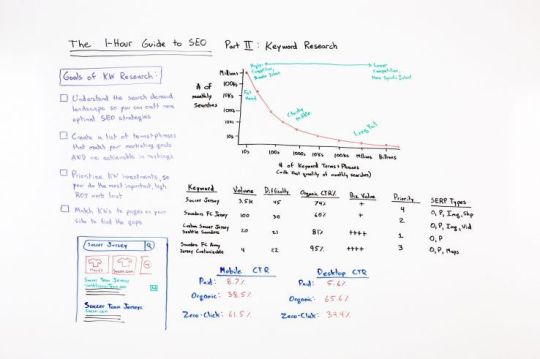 The 1-Hour Guide to SEO
Part II: Keyword Research
Goals of KW Research:
Understand the search demand
landscape so you can craft more
optimal SEO strategies
Create a list of terms+phrases
that match your marketing goals
AND are achievable in rankings
Prioritize KW investments, so
you do the most important, high
ROI work first
Match KWs to pages on your
site to find the gaps
Soccer Jersey
Soccer Team Jerseys
# of
monthly
Searches
Millions
100Ks
10Ks
1000s
100s
10s
Higher
Competition,
Broader Intent
Lower
Competition,
More Specific Intent
Fat
Head
Chunky
Middle
Long Tail
10s
100s
1000s
10Ks
100Ks
Millions
Billions
# of Keyword Terms + Phrases
(with that quantity of monthly searches)
Keyword Volume Difficulty Organic CTR% Biz Value Priority SERP Types
Soccer Jersey 3.5K 45 74% + 4 O, P, Img, Shp
Sounders FC Jersey 100 30 60% + 2 O, P, Img, Vid
Custom Soccer Jersey
Seattle Sounders 20 21 81% ++++ 1 O, P
Sounders FC Away
Jersey Customizable 4 22 95% ++++ 3 O, P, Maps
Mobile CTR
Paid: 8.7%
Organic: 38.5%
Zero-Click: 61.5%
Desktop CTR
Paid: 5.6%
Organic: 65.6%
Zero-Click: 34.4%